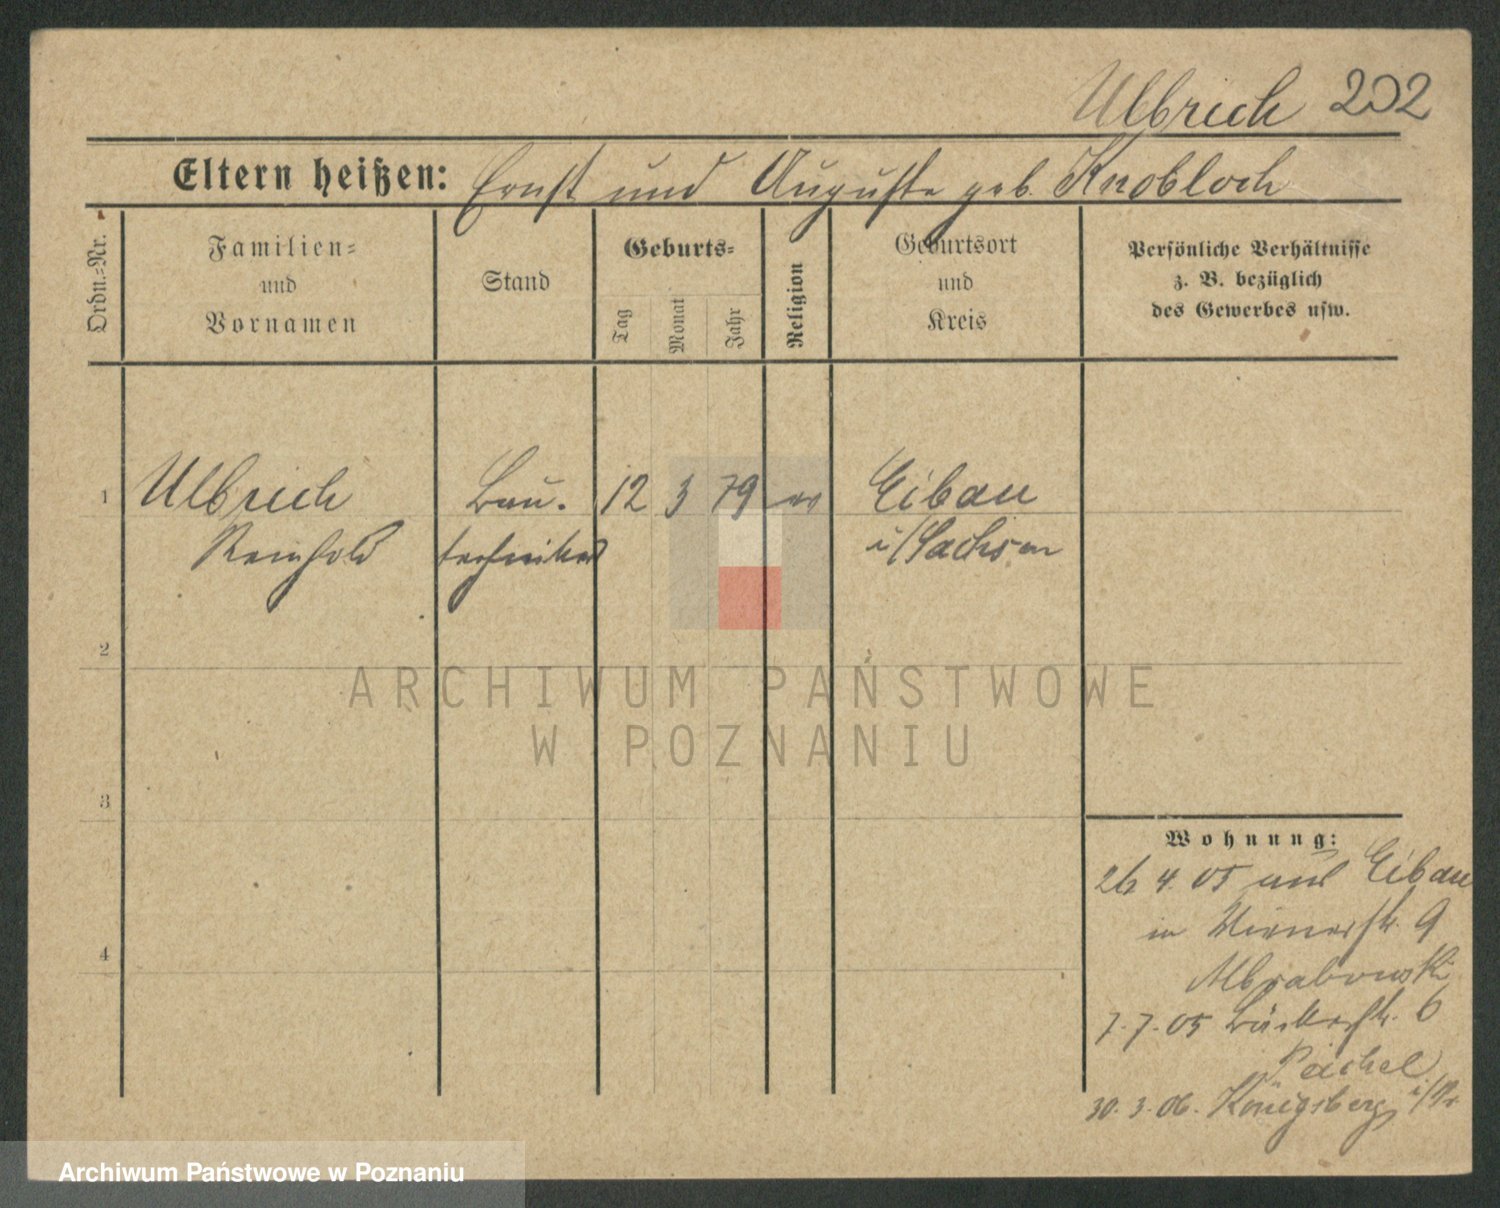 Ulbrich 202
Eltern heißen: Ernst und Auguste geb. Knobloch
Ordn.=Nr.
Familien=
und
Vornamen
Stand
Geburts=
Tag
Monat
Jahr
Religion
Geburtsort
und
Kreis
Persönliche Verhältnisse
z. B. bezüglich
des Gewerbes usw.
1 Ulbrich Bau- 12 3 79 ev Eibau
Reinhold techniker i/Sachsen
2
3
4
Wohnung:
26 4. 05 aus Eibau
in Wienerstr. 9
7. 7. 05 Bäckerstr. 6
30. 3. 06. Königsberg i/Pr
ARCHIWUM PAŃSTWOWE
W POZNANIU
Archiwum Państwowe w Poznaniu